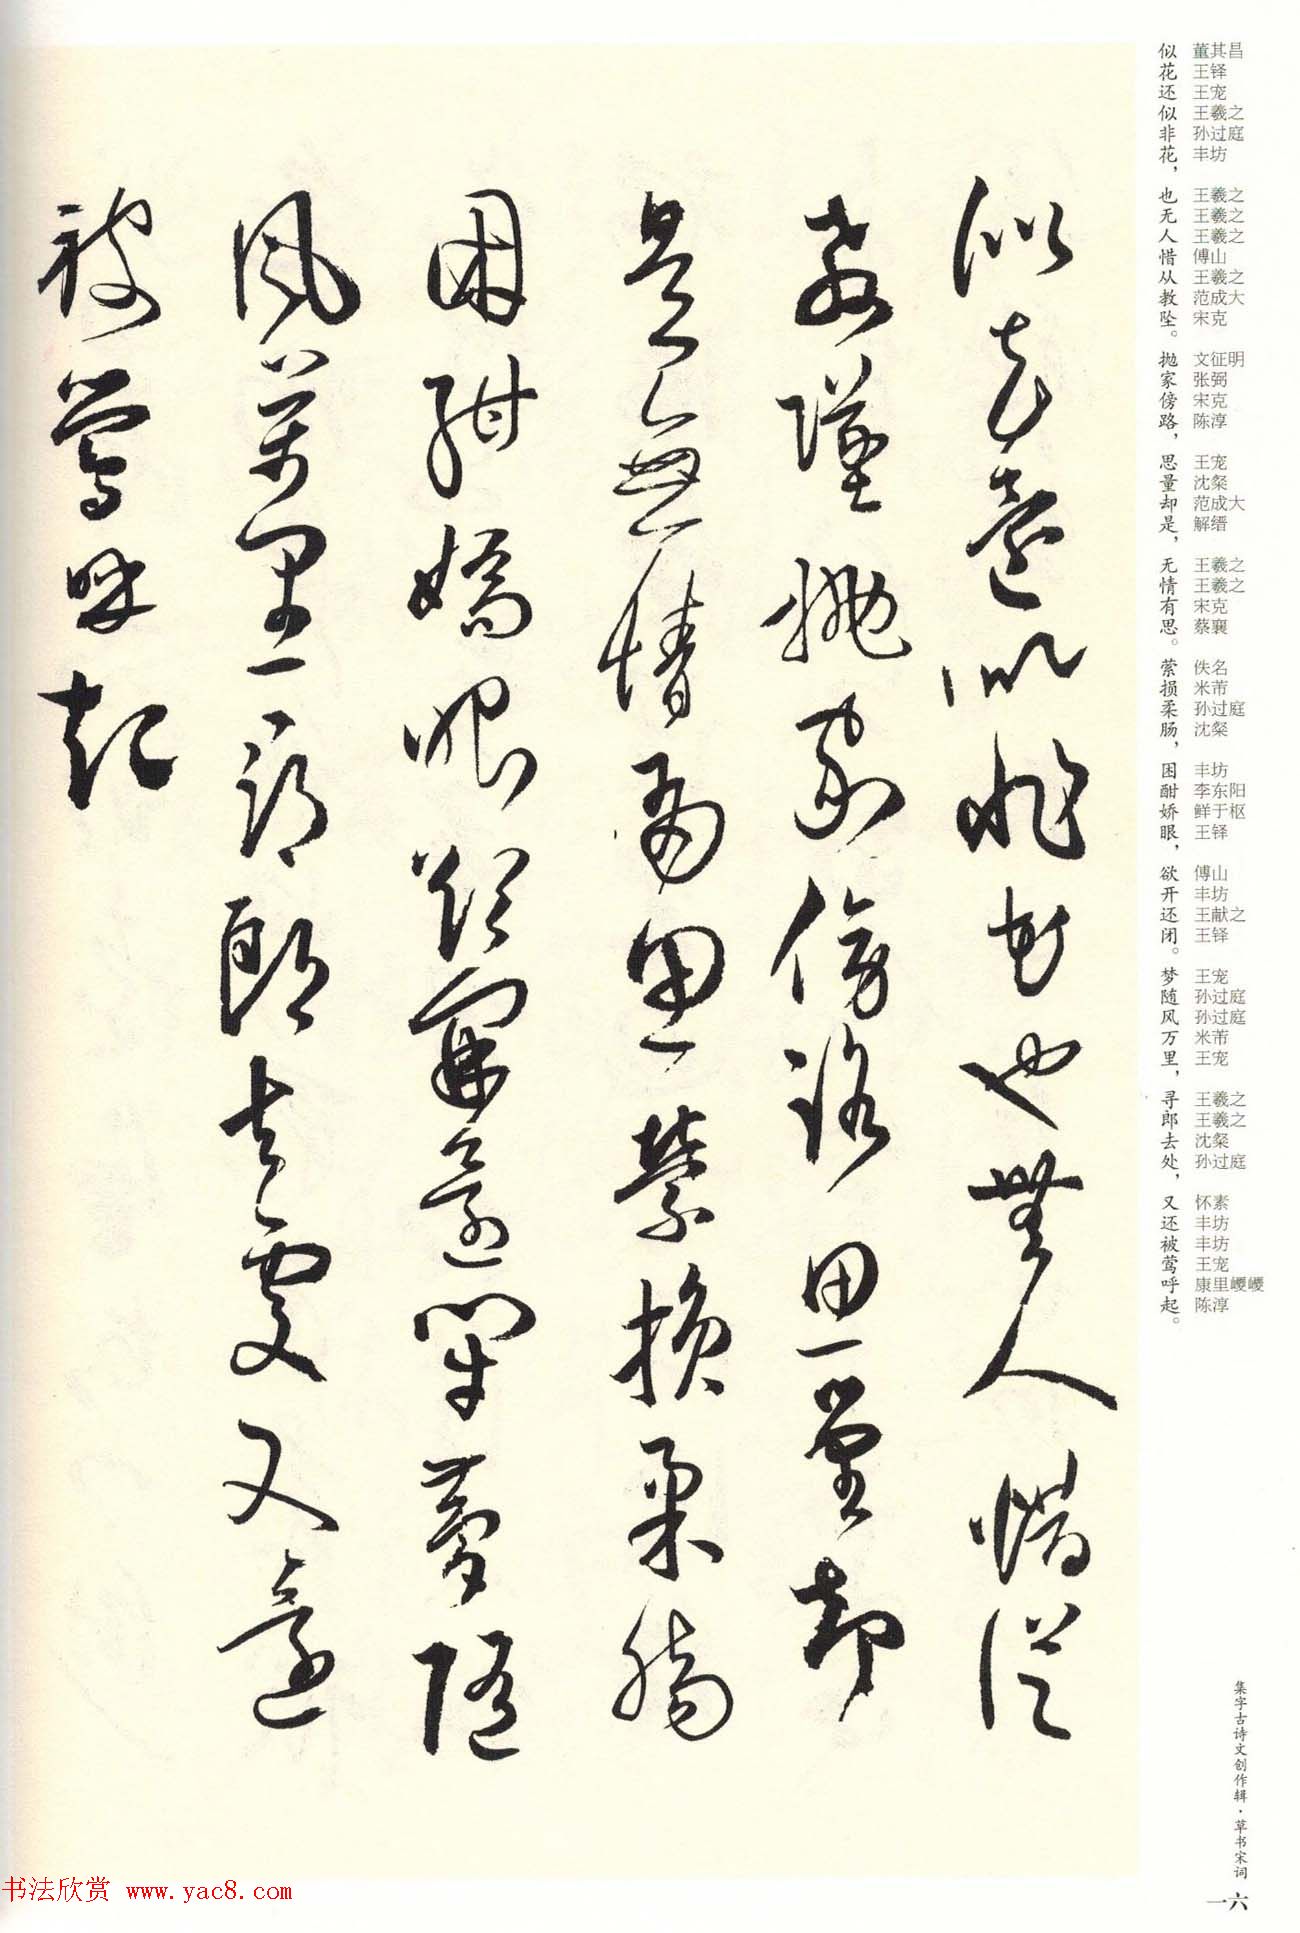 似花還似非花也無人惜從
教墜抛家傍路思量却
是無情有思縈損柔腸
困酣嬌眼欲開還閉夢隨
風萬里尋郎去處又還
被鶯呼起
似花还似非花，也无人惜从教坠。抛家傍路，思量却是，无情有思。萦损柔肠，困酣娇眼，欲开还闭。梦随风万里，寻郎去处，又还被莺呼起。
董其昌
王铎
王宠
王羲之
孙过庭
丰坊
王羲之
王羲之
王羲之
傅山
王羲之
范成大
宋克
文征明
张弼
宋克
陈淳
王宠
沈粲
范成大
解缙
王羲之
王羲之
宋克
蔡襄
佚名
米芾
孙过庭
沈粲
丰坊
李东阳
鲜于枢
王铎
傅山
丰坊
王献之
王铎
王宠
孙过庭
孙过庭
米芾
王宠
王羲之
王羲之
沈粲
孙过庭
怀素
丰坊
丰坊
王宠
康里巎巎
陈淳
集字古诗文创作辑·草书宋词
一六
书法欣赏 www.yac8.com